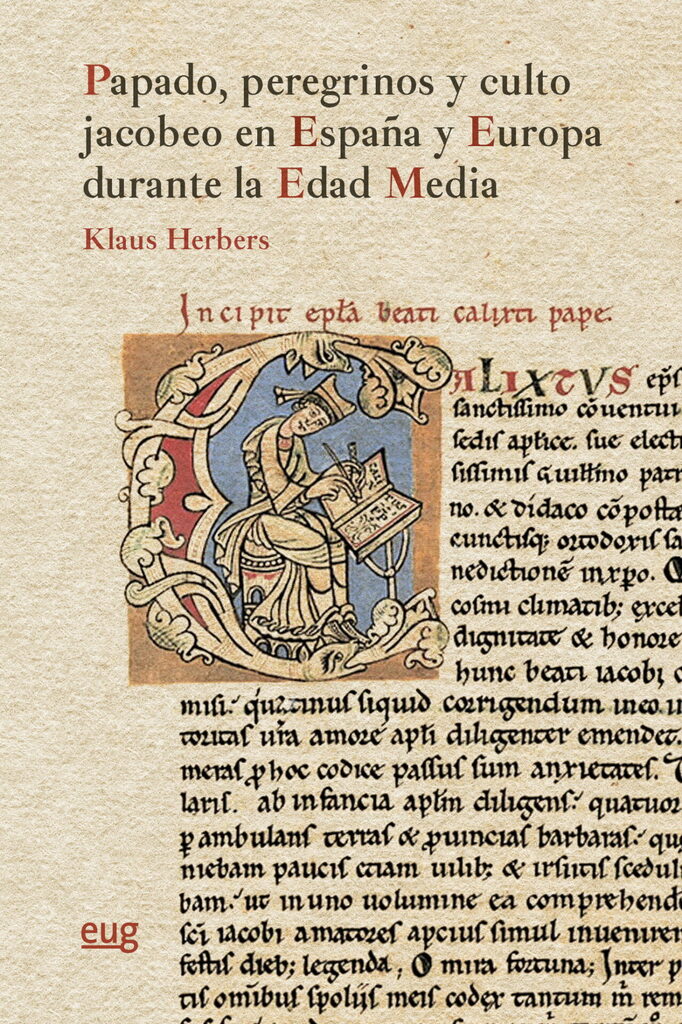 Papado, peregrinos y culto
jacobeo en España y Europa
durante la Edad Media
Klaus Herbers
Incipit epła beati calixti pape.
CALIXTVS ep̃s
sanctissimo cõuentui
sedis aptice. sue electi
sissimis Guillmo patr
no. & didaco cõposte
cunctisq; ortodoxis sa
nedictionẽ inxp̃o. 
cosmi climatib; excel
dignitate & honore
hunc beati iacobi c
misi. siquid corrigendum ineo in
toritas ur̃a amore apłi diligenter emendet.
meras p hoc codice passus sum anxietates.
laris. ab infancia apłm diligens. quatuor
perambulans terras & prouincias barbaras. que
niebam paucis ctiam uilib; & irsutis scedul
bam. ut inuno uolumine ea comprehende
sc̃i iacobi amatores apcius simul inuenirent
festis dieb; legenda, O mira fortuna; Inter p
tis omĩbus spolijs meis codex tantum m̃ rem
eug